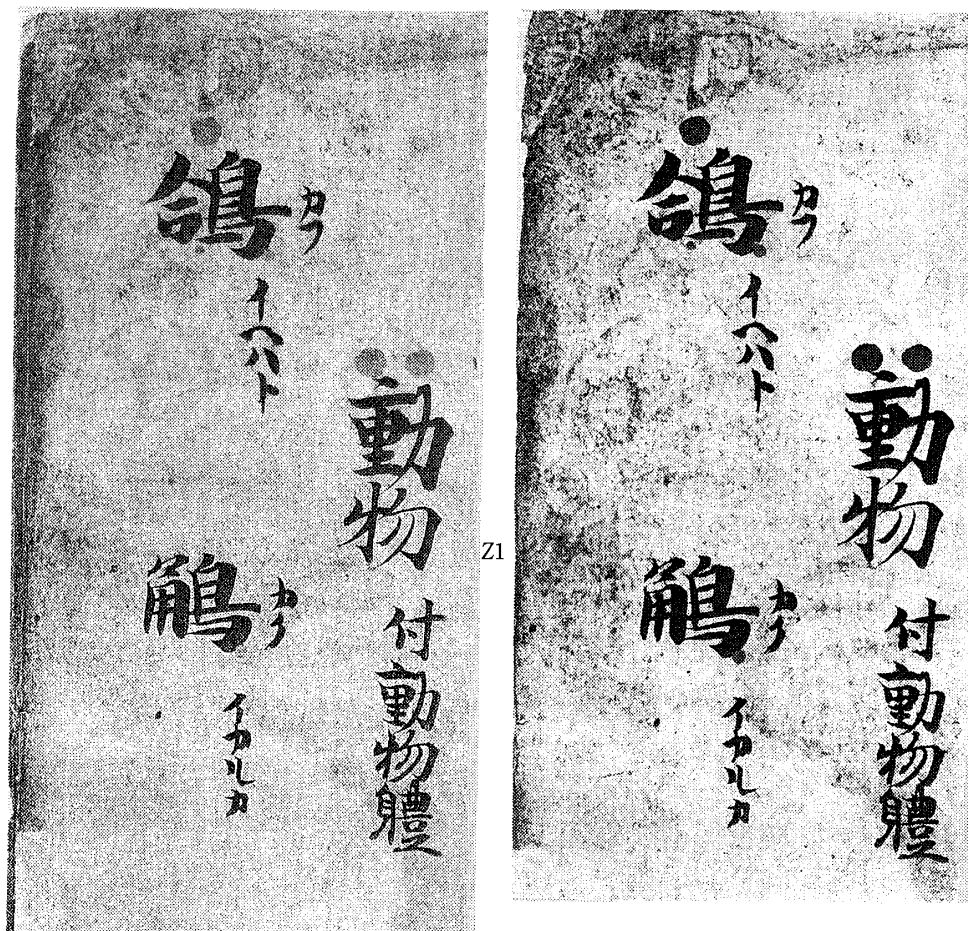 動物 付動物體
鴿 カフ イヘハト
鵤 カク イカルカ
Z1
動物 付動物體
鴿 カフ イヘハト
鵤 カク イカルカ